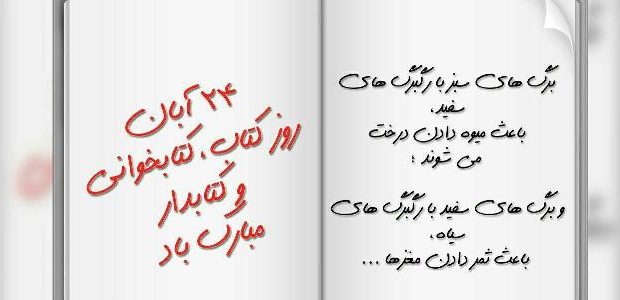 ۲۴ آبان
روز کتاب، کتابخوانی
و کتابدار
مبارک باد
برگ های سبز با رگبرگ های
سفید،
باعث میوه دادن درخت
می شوند ؛
و برگ های سفید با رگبرگ های
سیاه،
باعث ثمر دادن مغزها ...